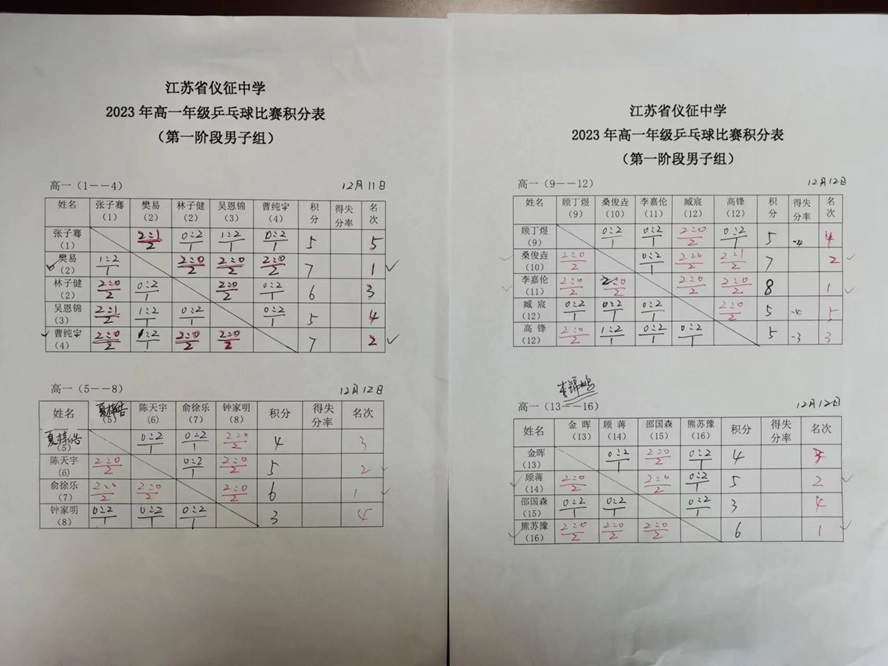 江苏省仪征中学
2023年高一年级乒乓球比赛积分表
（第一阶段男子组）
高一（1--4） 12月11日
姓名 张子骞（1） 樊易（2） 林子健（2） 吴恩锦（3） 曹纯宇（4） 积分 得失分率 名次
张子骞（1） 2:1/2 0:2/1 1:2/1 0:2/1 5 5
樊易（2） 1:2/1 2:0/2 2:0/2 2:0/2 7 1 ✓
林子健（2） 2:0/2 0:2/1 2:0/2 0:2/1 6 3
吴恩锦（3） 2:1/2 0:2/1 0:2/1 0:2/1 5 4
✓ 曹纯宇（4） 2:0/2 1:2/1 2:0/2 2:0/2 7 2 ✓
高一（5--8） 12月12日
姓名 （5） 陈天宇（6） 俞徐乐（7） 钟家明（8） 积分 得失分率 名次
（5） 0:2/1 0:2/1 2:0/2 4 3
陈天宇（6） 2:0/2 0:2/1 2:0/2 5 2 ✓
俞徐乐（7） 2:0/2 2:0/2 2:0/2 6 1 ✓
钟家明（8） 0:2/1 0:2/1 0:2/1 3 4
江苏省仪征中学
2023年高一年级乒乓球比赛积分表
（第一阶段男子组）
高一（9--12） 12月12日
姓名 顾丁煜（9） 桑俊垚（10） 李嘉伦（11） 臧宸（12） 高锋（12） 积分 得失分率 名次
顾丁煜（9） 0:2/1 0:2/1 2:0/2 0:2/1 5 -4 4
✓ 桑俊垚（10） 2:0/2 0:2/1 2:0/2 2:1/2 7 2 ✓
✓ 李嘉伦（11） 2:0/2 2:0/2 2:0/2 2:0/2 8 1 ✓
臧宸（12） 0:2/1 0:2/1 0:2/1 2:0/2 5 -4 5
高锋（12） 2:0/2 1:2/1 0:2/1 0:2/1 5 -3 3
高一（13--16） 12月12日
姓名 金晖（13） 顾蒋（14） 邵国森（15） 熊苏豫（16） 积分 得失分率 名次
金晖（13） 0:2/1 2:0/2 0:2/1 4 3
✓ 顾蒋（14） 2:0/2 2:0/2 0:2/1 5 2 ✓
邵国森（15） 0:2/1 0:2/1 0:2/1 3 4
✓ 熊苏豫（16） 2:0/2 2:0/2 2:0/2 6 1 ✓